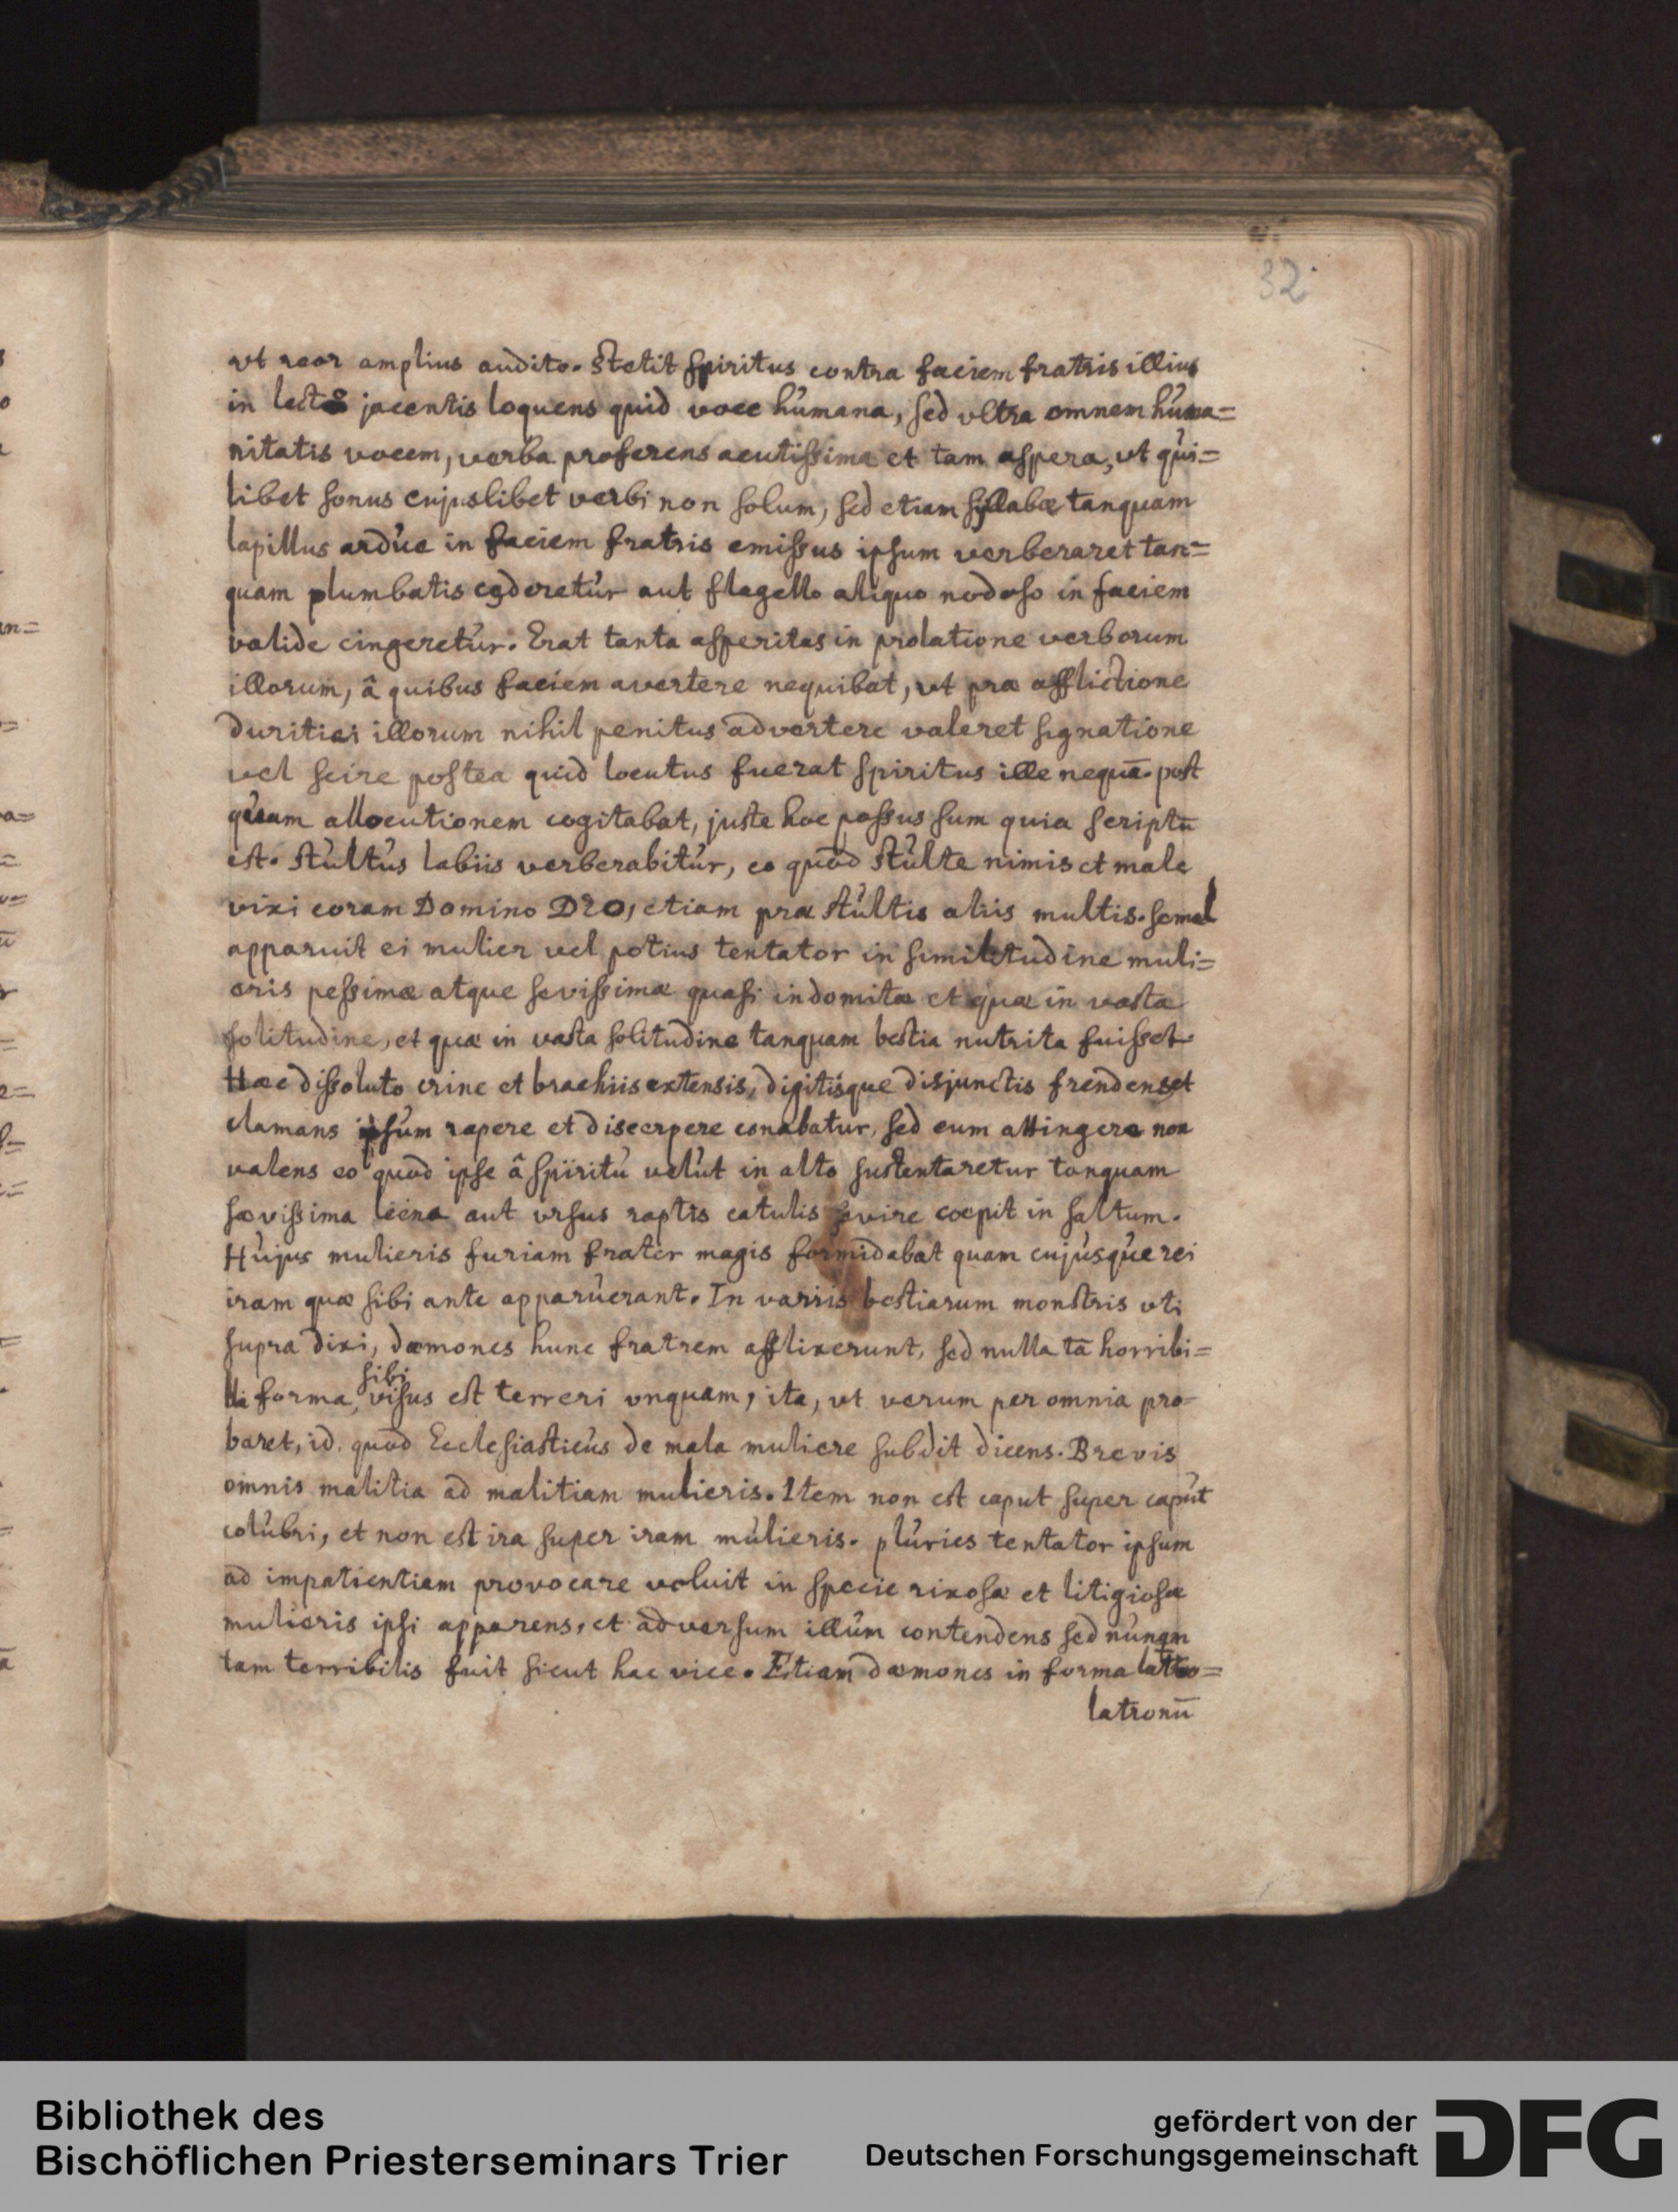 32
vt reor amplius audito. Stetit spiritus contra faciem fratris illius
in lecto jacentis loquens quid voce humana, sed vltra omnem huma=
nitatis vocem, verba proferens acutissima et tam aspera, ut qui=
libet sonus cujuslibet verbi non solum, sed etiam syllabæ tanquam
lapillus ardue in faciem fratris emissus ipsum verberaret tan=
quam plumbatis cęderetur aut flagello aliquo nodoso in faciem
valide cingeretur. Erat tanta asperitas in prolatione verborum
illorum, â quibus faciem avertere nequibat, vt præ afflictione
duritiei illorum nihil penitus advertere valeret signatione
vel scire postea quid locutus fuerat spiritus ille nequā. post
quam allocutionem cogitabat, juste hoc passus sum quia scriptū
est. Stultus labiis verberabitur, eo quod stulte nimis et male
vixi coram Domino DEO, etiam præ stultis aliis multis. semel
apparuit ei mulier vel potius tentator in similitudine muli=
eris pessimæ atque sevissimæ quasi indomitæ et quæ in vasta
solitudine, et quæ in vasta solitudine tanquam bestia nutrita fuisset.
Hæc dissoluto crine et brachiis extensis, digitisque disjunctis frendens et
clamans ipsum rapere et discerpere conabatur, sed eum attingere non
valens eo quod ipse â spiritu velut in alto sustentaretur tanquam
sævissima leena aut vrsus raptis catulis sęvire coepit in saltum.
Hujus mulieris furiam frater magis formidabat quam cujusque rei
iram quæ sibi ante apparuerant. In variis bestiarum monstris vti
supra dixi, dæmones hunc fratrem afflixerunt, sed nulla tā horribi=
sibi
li forma, visus est terreri vnquam, ita, vt verum per omnia pro=
baret, id, quod Ecclesiasticus de mala muliere subdit dicens. Brevis
omnis malitia ad malitiam mulieris. Item non est caput super caput
colubri, et non est ira super iram mulieris. pluries tentator ipsum
ad impatientiam provocare voluit in specie rixosæ et litigiosæ
mulieris ipsi apparens, et adversum illum contendens sed nunqm
tam terribilis fuit sicut hac vice. Etiam dæmones in forma latro=
latronū
Bibliothek des
Bischöflichen Priesterseminars Trier
gefördert von der
Deutschen Forschungsgemeinschaft
DFG